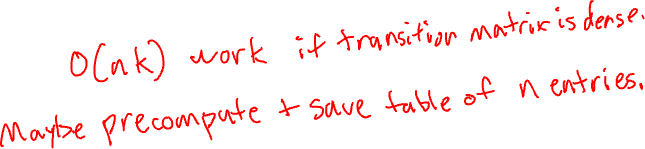 O(nk) work if transition matrix is dense.
Maybe precompute + save table of n entries.